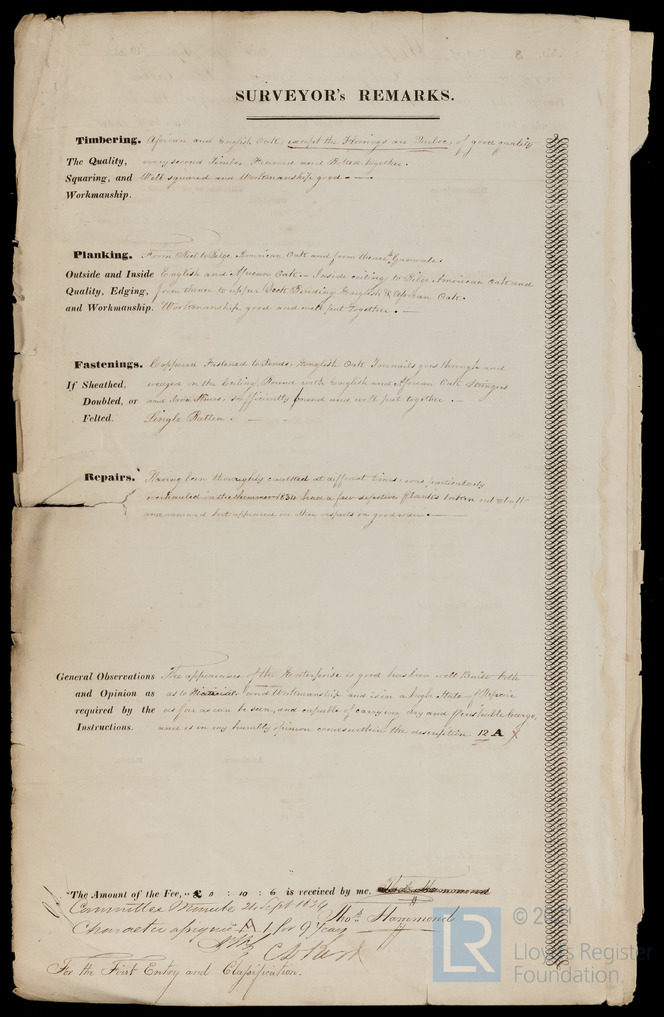 SURVEYOR's REMARKS.
Timbering. African and English Oak, except the Floorings are Timber, of good quality
The Quality, every second Timber Framed and Bolted together.
Squaring, and Well squared and Workmanship good. —
Workmanship.
Planking. From Keel to Bilge American Oak and from thence to Gunwale
Outside and Inside English and African Oak. — Inside ceiling to Bilge American Oak and
Quality, Edging, from thence to upper Deck Binding English & African Oak.
and Workmanship. Workmanship good and well put together. —
Fastenings. Coppered Fastened to Bends. English Oak Treenails goes through and
If Sheathed, wedged in the Ceiling, Bound with English and African Oak Stringers
Doubled, or and Iron Knees, sufficiently found and well put together. —
Felted. Single Bottom. — —
Repairs. Having been thoroughly caulked at different times, was particularly
overhauled in the Summer 1834 had a few defective planks taken out
and renewed but appeared in other respects in good order. —
General Observations The appearance of the Enterprise is good has been well Built both
and Opinion as as to Materials and Workmanship and is in a high State of Repair
required by the as far as can be seen, and capable of carrying dry and Perishable Cargo,
Instructions. and is in my humble opinion comes within the description 12 A
The Amount of the Fee, „ £ 0 : 10 : 6 is received by me, Thos. Hammond
Committee Minute 24 Sept 1834
Thos. Hammond
Character assigned A 1 for 9 Years
For the First Entry and Classification.
LR
© 2021
Lloyd's Register
Foundation